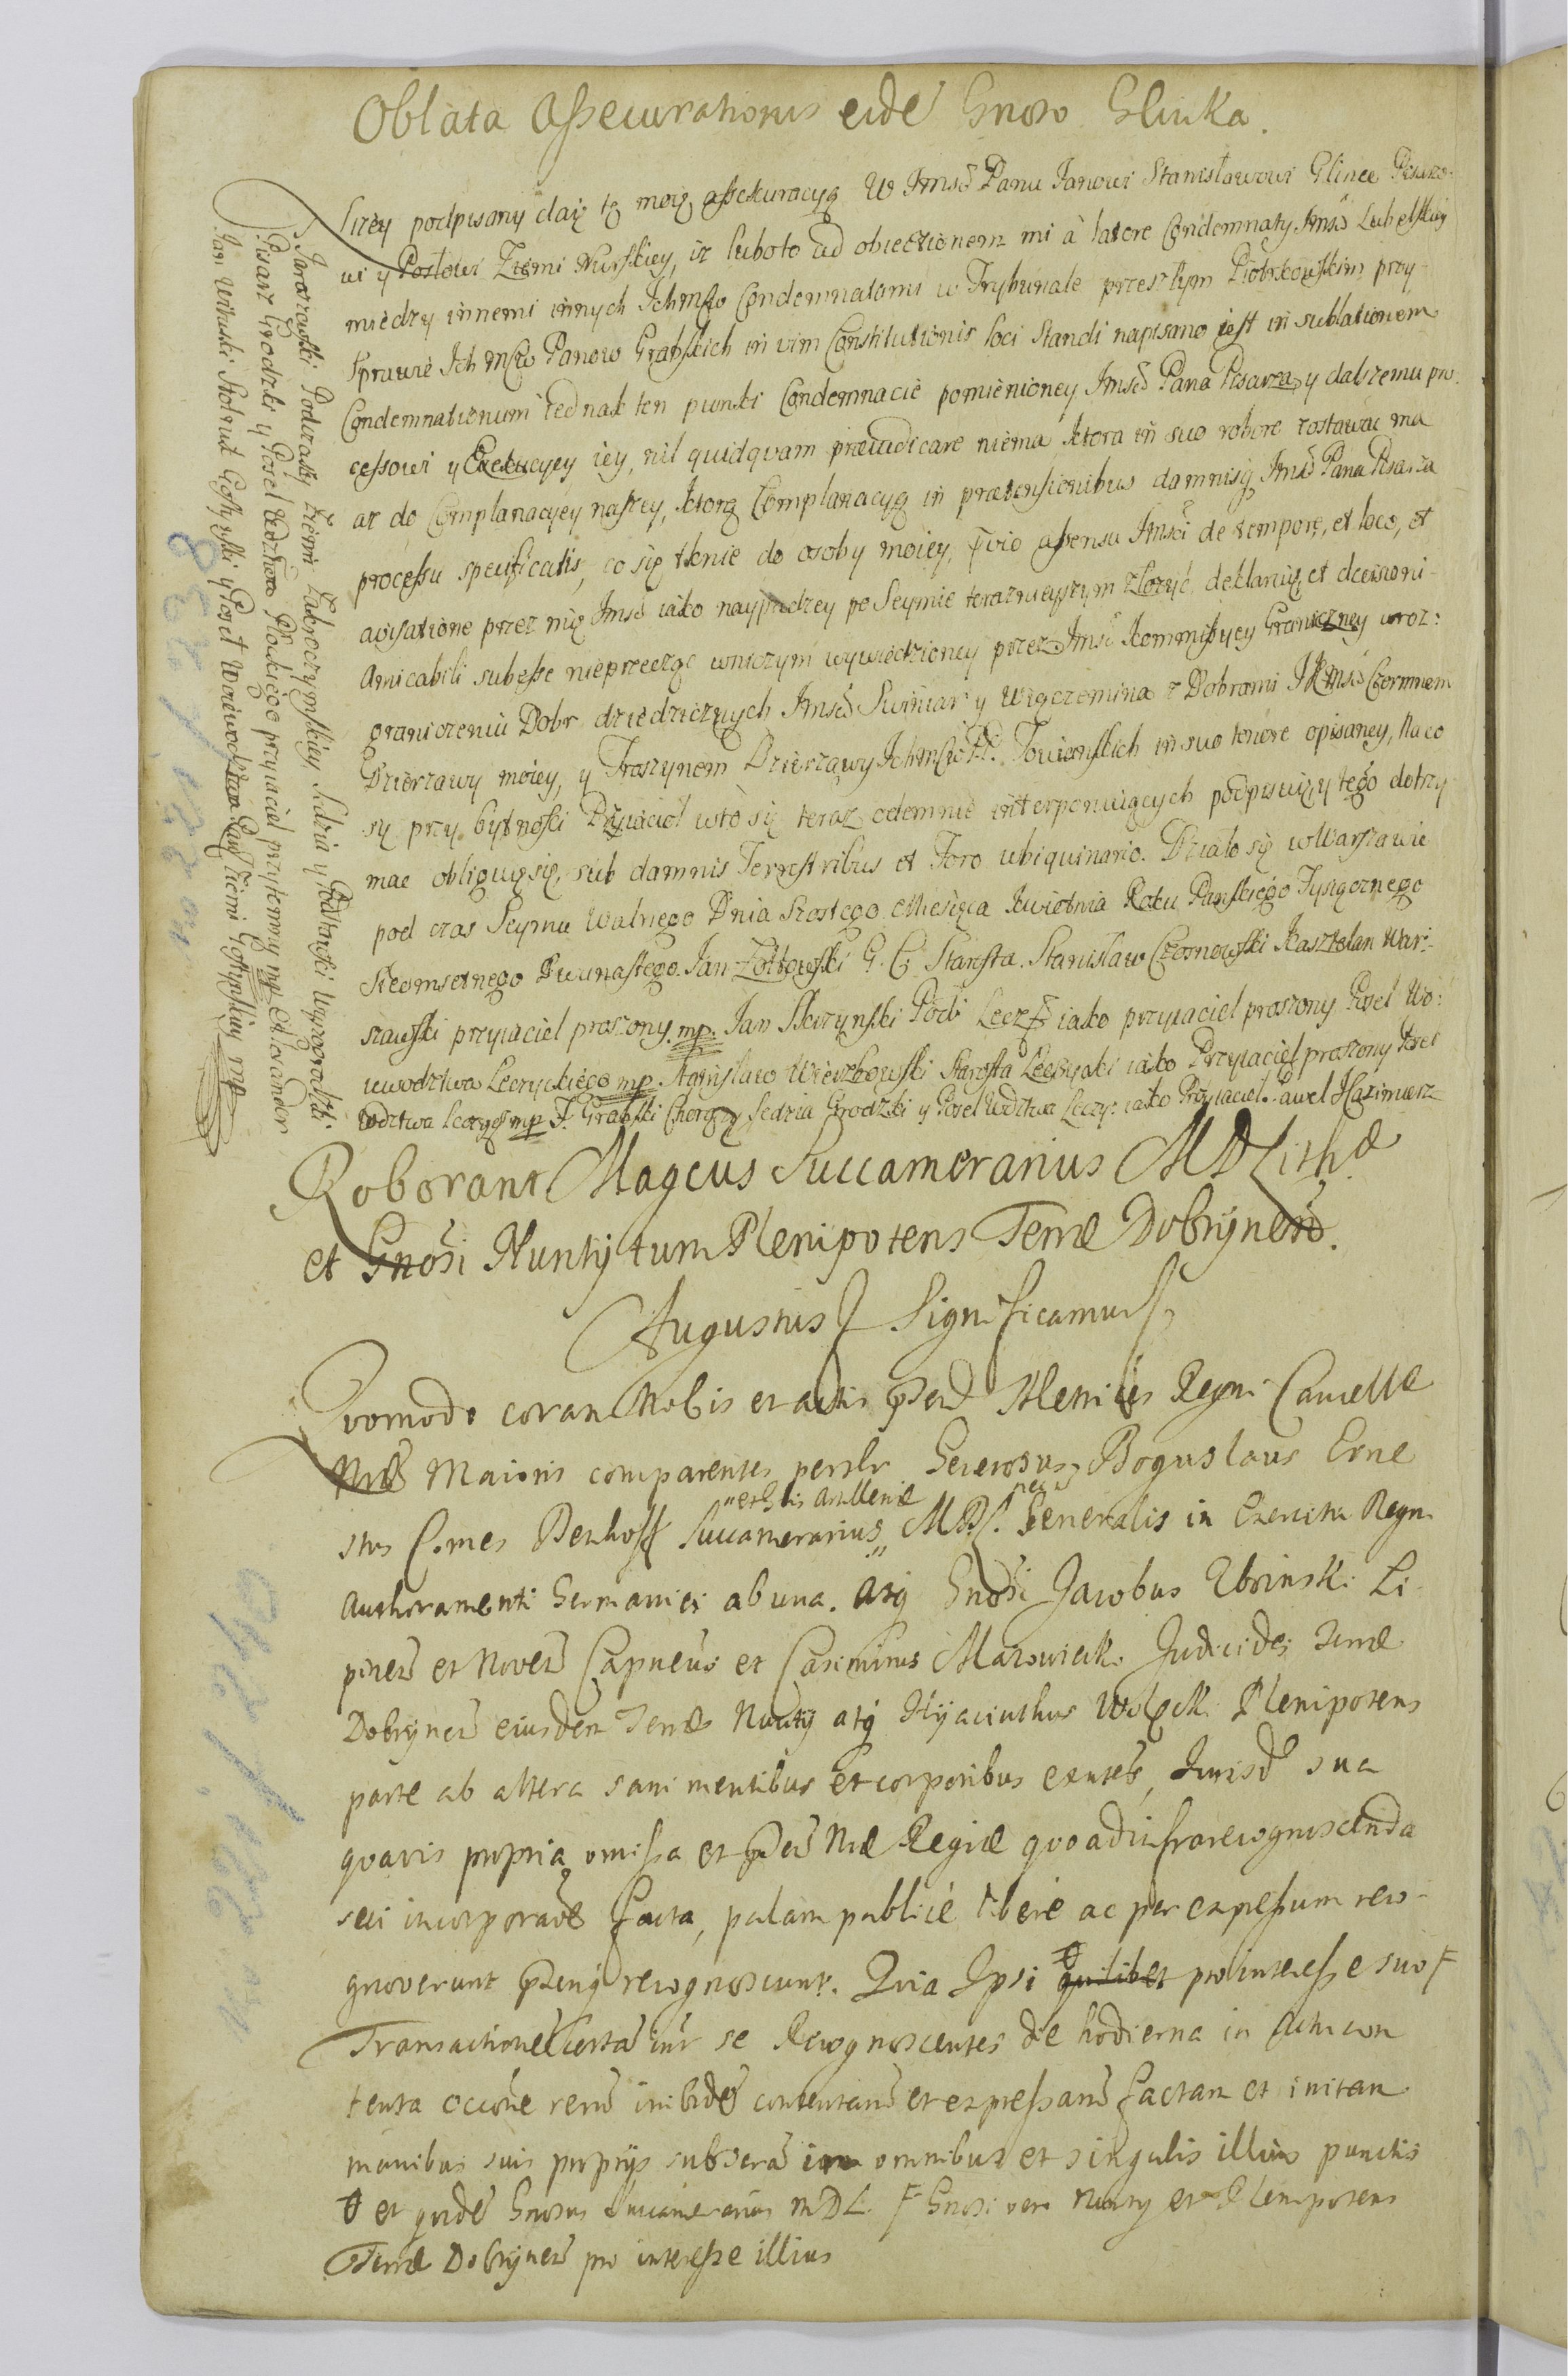 Oblata Assecurationis eidē Gnoso Glinka.
Nizey podpisany daię tę moię assekuracyą W Jmsci Panu Janowi Stanisławowi Glince Pisarzo-
wi y Posłowi Ziemi Nurskiey, iz luboto ad obiectionem mi à latere Condemnaty Jmsci Lubelskiey
między innemi innych Ichmsciow Condemnatami w Trybunale przeszłym Piotrkowskim przy
Sprawie Ich Msciow Panow Grabskich in vim Constitutionis loci standi napisano iest in sublationem
Condemnationum iednak ten punkt Condemnacie pomienioney Jmsci Pana Pisarza y dalszemu pro-
cessowi y Exekucyey iey, nil quidquam præiudicare niema ktora in suo robore zostawać ma
az do Complanacyey naszey, ktorą Complanacyą in prætensionibus damnisq Jmsci Pana Pisarza
processu specificatis, co się tknie do osoby moiey, prævio assensu Jmsci de tempore, et loco, et
avisatione przez mię Jmsci iako nayprędzey po Seymie teraznieyszym złozyć deklaruię, et decisioni
Amicabili subesse nieprzecząc wniczym wywiedzioney przez Jmsci Kommissyey Graniczney wroz:
graniczeniu Dobr dziedzicznych Jmsci Swiniar y Wiączemina z Dobrami Ichmsci Czermnem
Dzierzawy moiey, y Troszynem Dzierzawy Ichmsciow PP. Towianskich in suo tenore opisaney, Na co
się przy bytnosci Przyiacioł wto się teraz odemnie interponuiących podpisuię y tego dotrzy
mac obliguię się, sub damnis Terrestribus et Foro ubiquinario. Działo się w Warszawie
pod czas Seymu Walnego Dnia Szostego Miesiąca Kwietnia Roku Panskiego Tysiącznego
Siedmsetnego Dwunastego. Jan Zołtowski G. G. Starosta. Stanisław Czosnowski Kasztelan War-
szawski przyiaciel proszony mp. Jan Skrzynski Podcz Lecz iako przyiaciel proszony Poseł Wo:
iewodztwa Leczyckiego mp. Stanisław Wierzbowski Starosta Leczycki iako Przyiaciel proszony Poseł
Wdztwa Leczyc mp F. Grabski Chorązy Sedzia Grodzki y Poseł Wdztwa Leczyc: iako Przyiaciel. Paweł Kazimierz
Jaroszewski Podczaszy Ziemi Zakroczymskiey, Sędzia y Podstarosci Wyzogrodzki.
Pisarz Grodzki y Poseł Wdztwa Płockiego przyiaciel przytomny mp Alexander
Jan Stolnik Gostynski y Poseł Woiewodztwa Ziemi Gostynskiey mp
Roborant Magcus Succamerarius M D Lith æ
et Gnosi Nuntÿ tum Plenipotens Terræ Dobrynen.
Augustus Significamus
Quomodo coram Nobis et actis præsen Metrices Regni Cancellæ
Nræ Maioris comparentes persolr Generosus Boguslaus Erne
stus Comes Denhoff Succamerarius „ M D L. Generalis in Exercitu Regn.
„ et Glis Artilleriæ nec
Authoramenti Germanici ab una. Atq Gnosi Jacobus Zboinski Li
pinen et Noven Capneus et Casimirus Mazowiecki Judicides Terræ
Dobrynen eiusdem Terræ Nuntÿ atq Hyacinthus Plenipotens
parte ab altera sani mentibus et corporibus exntes, Jurisd sua
quavis propria omissa et præsen Nræ Regiæ quoad infrarecognoscenda
sese incorporave facta, palam publicè liberè ac per expressum reco-
gnoverunt præsentq recognoscunt. Quia Ipsi quilibet pro interesse suo
Transactionē Certā intr se Recognoscentes de hodierna in Actu con
tenta occone rerū inibidē contentarū et expressarū factam et initam
manibus suis proprÿs subscrā in omnibus et singulis illius punctis
et quidē Gnosus Succamerarius M D L. Gnosi vero Nuntÿ et Plenipotens
Terræ Dobrynen pro interesse illius